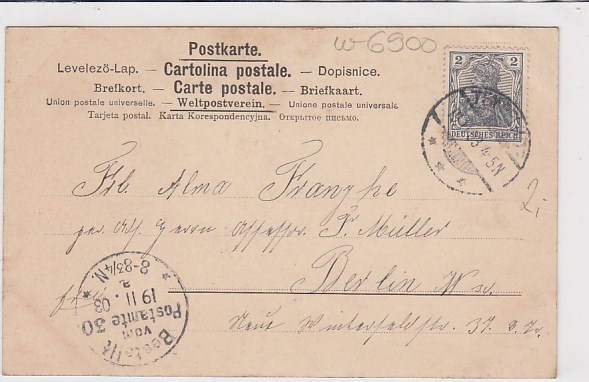 Postkarte.
w-6900
Levelező-Lap. — Cartolina postale. — Dopisnice.
Brefkort. — Carte postale. — Briefkaart.
Union postale universelle. — Weltpostverein. — Unione postale universale
Tarjeta postal. Karta Korespondencyjna. Открытое письмо.
2 2
DEUTSCHES REICH
4-5N
2,-
Frl. Alma
per Adr. Herrn Assessor F. Müller
Berlin W
Neue Winterfeldstr. 37.
Bestellt
vom
Postamte 30
19 11. 03
8-8¾N.